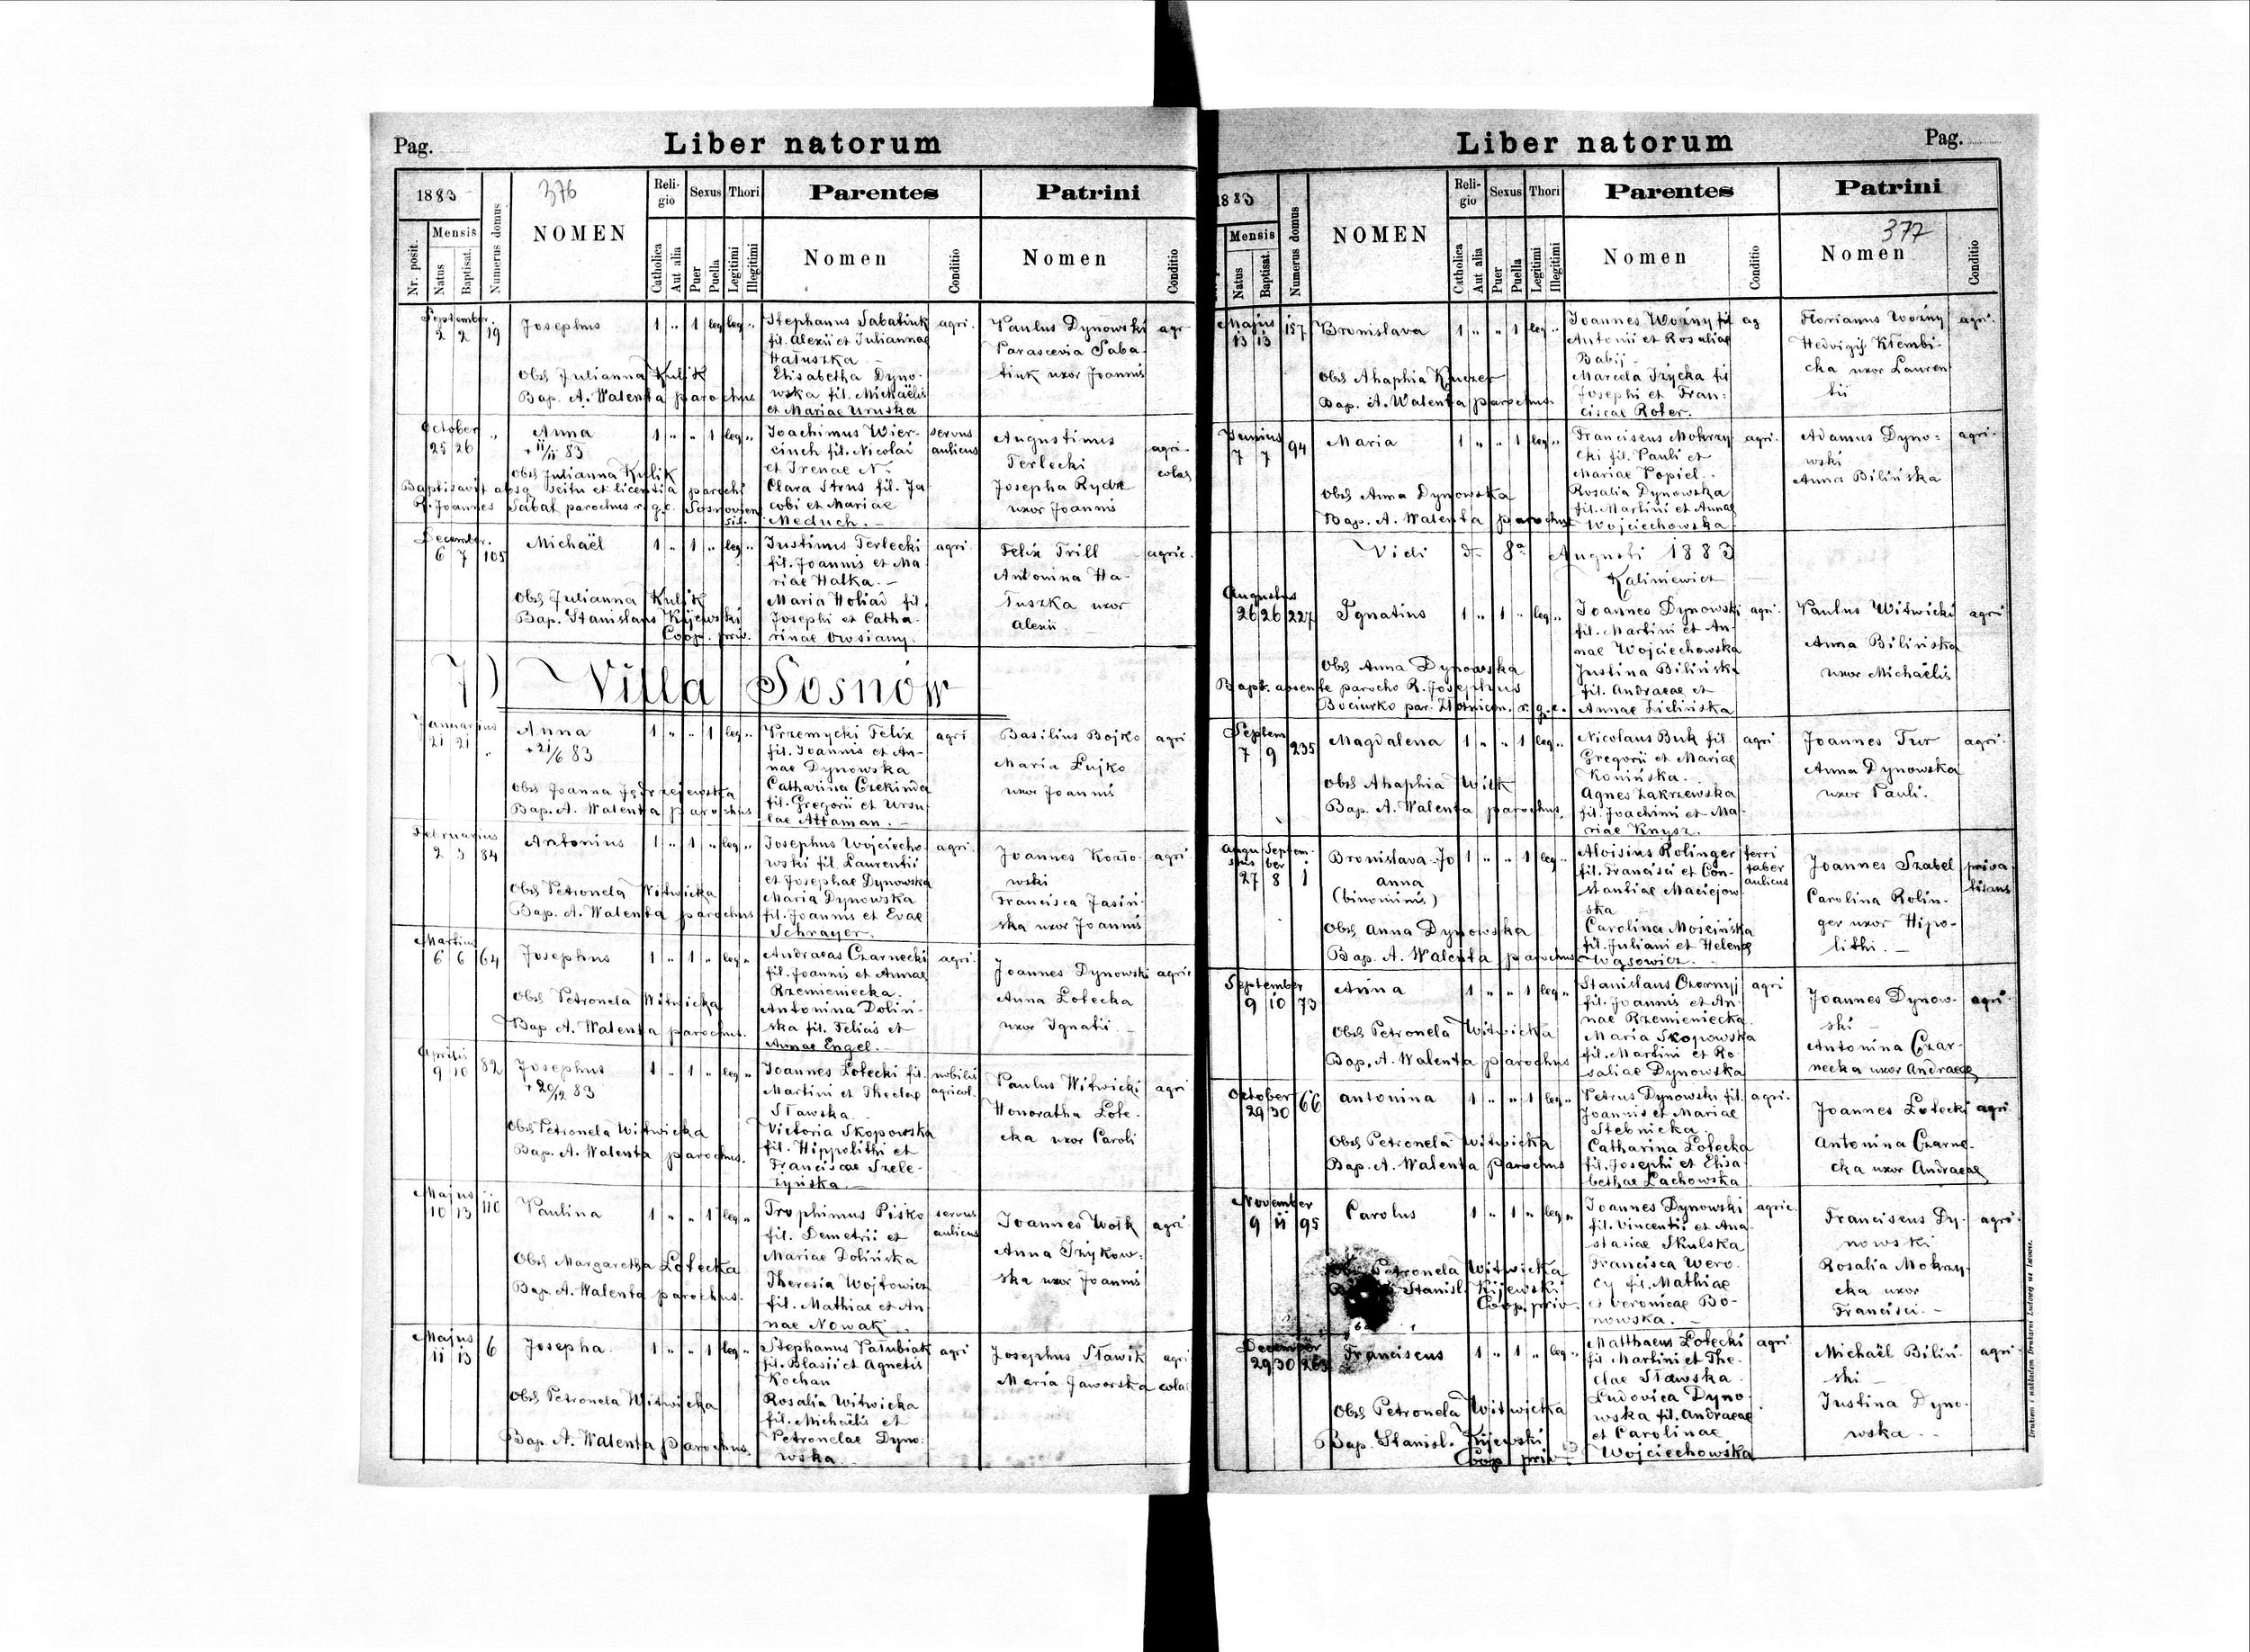 Pag.
Liber natorum
1883
376
Nr. posit.
Mensis
Natus
Baptisat.
Numerus domus
NOMEN
Religio
Catholica
Aut alia
Sexus
Puer
Puella
Thori
Legitimi
Illegitimi
Parentes
Nomen
Conditio
Patrini
Nomen
Conditio
September
2 2 19 Josephus 1 " 1 leg leg "
Obs Julianna Kulik
Bap. A. Walenta parochus
Stephanus Sabatiuk agri.
fil. Alexii et Juliannae
Hałuszka
Elisabetha Dyno-
wska fil. Michaëlis
et Mariae Uruska
Paulus Dynowski agr
Parascevia Saba-
tiuk uxor Joannis
October
25 26 " Anna 1 " " 1 leg "
+ 11/11 83
Obs Julianna Kulik
Baptisavit absq scitu et licentia parochi
R. Joannes Sabat parochus r. g. c. Sosnovien
sis.
Joachimus Wier- servus
cinch fil. Nicolai aulicus
et Irenae N.
Clara Strus fil. Ja
cobi et Mariae
Meduch. —
Augustinus agri-
Terlecki colas
Josepha Rydz
uxor Joannis
Decembr.
6 7 105 Michaël 1 " 1 " leg "
Obs Julianna Kulik
Bap. Stanislaus Kijewski
Coop. priv.
Justinus Terlecki agri
fil. Joannis et Ma
riae Hałka. —
Maria Holiad fil.
Josephi et Catha-
rinae Owsiany.
Felix Trill agric.
Antonina Ha-
łuszka uxor
Alexii
7) Villa Sosnów
Januarius
21 21 " Anna 1 " " 1 leg "
+ 21/6 83
Obs Joanna Jędrzejewska
Bap. A. Walenta parochus
Przemycki Felix agri
fil. Joannis et An-
nae Dynowska
Catharina Czekinda
fil. Gregorii et Ursu
lae Attaman. —
Basilius Bojko agri
Maria Łujko
uxor Joannis
Februarius
2 3 84 Antonius 1 " 1 " leg "
Obs Petronela Witwicka
Bap. A. Walenta parochus
Josephus Wojciecho- agri.
wski fil. Laurentii
et Josephae Dynowska
Maria Dynowska
fil. Joannis et Evae
Schrayer.
Joannes Kozło- agri
wski
Francisca Jasiń-
ska uxor Joannis
Martius
6 6 64 Josephus 1 " 1 " leg "
Obs Petronela Witwicka
Bap A. Walenta parochus.
Andraeas Czarnecki agri.
fil. Joannis et Annae
Rzemieniecka.
Antonina Doliń-
ska fil. Felicis et
Annae Engel. —
Joannes Dynowski agric
Anna Łotecka
uxor Ignatii. —
Aprilis
9 10 82 Josephus 1 " 1 " leg "
+ 20/12 83
Obs Petronela Witwicka
Bap. A. Walenta parochus.
Joannes Łotecki fil. nobilis
Martini et Theclae agricol.
Sławska.
Victoria Skopowska
fil. Hippolithi et
Franciscae Szele-
żyńska. —
Paulus Witwicki agri
Honoratha Łote-
cka uxor Caroli
Majus
10 13 110 Paulina 1 " " 1 leg "
Obs Margaretha Łotecka
Bap. A. Walenta parochus.
Trophimus Pisko servus
fil. Demetrii et aulicus
Mariae Zolińska
Theresia Wojtowicz
fil. Mathiae et An
nae Nowak
Joannes Wołk agri
Anna Iżykow-
ska uxor Joannis
Majus
11 13 6 Josepha 1 " " 1 leg "
Obs Petronela Witwicka
Bap. A. Walenta parochus.
Stephanus Pałubiak agri
fil. Blasii et Agnetis
Kochan
Rosalia Witwicka
fil. Michaëlis et
Petronelae Dyno-
wska
Josephus Sławik agri
Maria Jaworska colae
Liber natorum
Pag.
1883
Mensis
Natus
Baptisat.
Numerus domus
NOMEN
Religio
Catholica
Aut alia
Sexus
Puer
Puella
Thori
Legitimi
Illegitimi
Parentes
Nomen
Conditio
Patrini
377
Nomen
Conditio
Majus
13 13 157 Bronislava 1 " " 1 leg "
Obs Ahaphia Kuczer
Bap. A. Walenta parochus.
Joannes Woźny fil ag
Antonii et Rosaliae
Babij
Marcela Iżycka fil
Josephi et Fran-
ciscae Roter.
Florianus Woźny agri.
Hedvigis Kłembi-
cka uxor Lauren
tii
Junius
7 7 94 Maria 1 " " 1 leg "
Obs Anna Dynowska
Bap. A. Walenta parochus
Franciscus Mokrzy agri.
cki fil. Pauli et
Mariae Popiel.
Rosalia Dynowska
fil. Martini et Annae
Wojciechowska
Adamus Dyno- agri.
wski
Anna Bilińska
Vidi d. 8a Augusti 1883
Kaliniewicz
Augustus
26 26 227 Ignatius 1 " 1 " leg "
Obs Anna Dynowska
Bapt. absente parocho R. Josephus
Bociurko par. Złotnicen. r. g. c.
Joannes Dynowski agri.
fil. Martini et An-
nae Wojciechowska
Justina Bilińska
fil. Andraeae et
Annae Zielińska
Paulus Witwicki agri
Anna Bilińska
uxor Michaëlis
Septem
7 9 235 Magdalena 1 " " 1 leg "
Obs Ahaphia Wilk
Bap. A. Walenta parochus.
Nicolaus Buk fil. agri.
Gregorii et Mariae
Konińska.
Agnes Zakrzewska
fil. Joachimi et Ma-
riae Knysz.
Joannes Tur agri.
Anna Dynowska
uxor Pauli.
Augu Septem-
stus ber
27 8 1 Bronislava-Jo 1 " " 1 leg "
anna
(binominis)
Obs Anna Dynowska
Bap. A. Walenta parochus
Aloisius Rolinger ferri
fil. Francisci et Con- faber
stantiae Maciejow aulicus
ska
Carolina Mościńska
fil. Juliani et Helenae
Wąsowicz.
Joannes Szabel priva-
Carolina Rolin- tisans
ger uxor Hipo-
lithi. —
September
9 10 73 Anna 1 " " 1 leg "
Obs Petronela Witwicka
Bap. A. Walenta parochus
Stanislaus Czornyj agri
fil. Joannis et An-
nae Rzemieniecka.
Maria Skopowska
fil. Martini et Ro-
saliae Dynowska
Joannes Dynow- agri
ski —
Antonina Czar-
necka uxor Andraeae
October
29 30 66 Antonina 1 " " 1 leg "
Obs Petronela Witwicka
Bap. A. Walenta parochus
Petrus Dynowski fil. agri.
Joannis et Mariae
Stebnicka.
Catharina Łotecka
fil. Josephi et Elisa
bethae Lachowska
Joannes Łotecki agri
Antonina Czarne-
cka uxor Andraeae
November
9 11 95 Carolus 1 " 1 " leg "
Obs Petronela Witwicka
Stanisl. Kijewski
Coop. priv.
Joannes Dynowski agric
fil. Vincentii et Ana
stasiae Skulska
Francisca Wero-
cy fil. Mathiae
et Veronicae Bo-
nowska. —
Franciscus Dy- agri.
nowski
Rosalia Mokrzy
cka uxor
Francisci. —
December
29 30 263 Franciscus 1 " 1 " leg "
Obs Petronela Witwicka
Bap. Stanisl. Kijewski
Coop priv
Matthaeus Łotecki agri.
fil Martini et The-
clae Sławska.
Ludovica Dyno-
wska fil. Andraeae
et Carolinae
Wojciechowska
Michaël Biliń- agri.
ski —
Justina Dyno-
wska
Drukiem i nakładem Drukarni Ludowej we Lwowie.